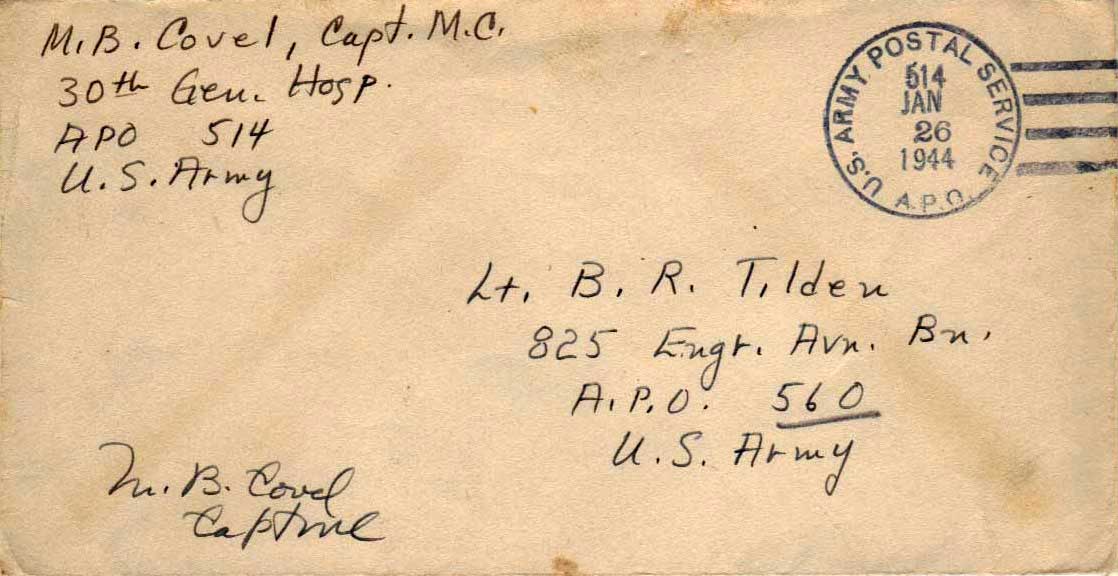 M.B. Covel, Capt. M.C.
30th Gen. Hosp.
APO 514
U.S. Army
U.S. ARMY POSTAL SERVICE
514
JAN
26
1944
A.P.O.
Lt. B. R. Tilden
825 Engr. Avn. Bn.
A.P.O. 560
U.S. Army
M. B. Covel
Capt MC